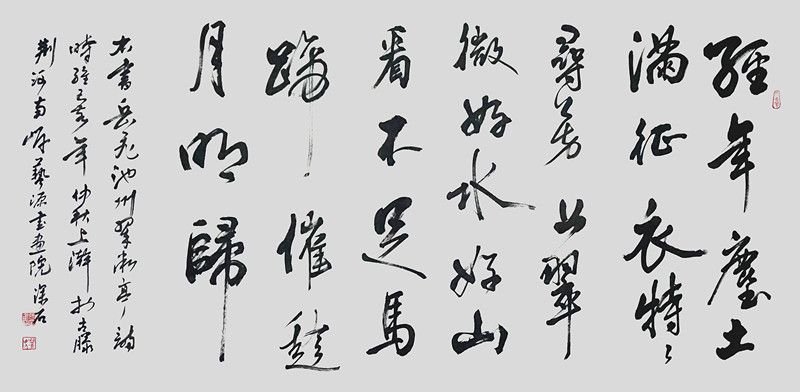 經年塵土
滿征衣特〻
尋芳上翠
微好水好山
看不足馬
蹄催趁
月明歸
右書岳飛池州翠微亭之詩
時維己亥年仲秋上澣於古滕
荆河南岸藝源書畫院深石